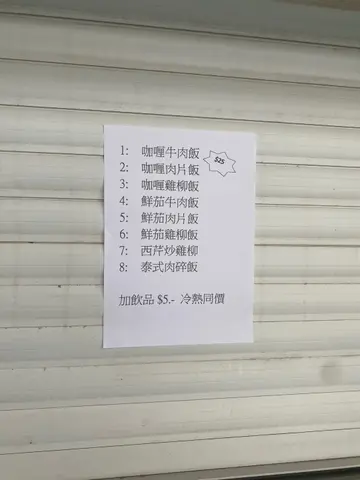 1: 咖喱牛肉飯
$25
2: 咖喱肉片飯
3: 咖喱雞柳飯
4: 鮮茄牛肉飯
5: 鮮茄肉片飯
6: 鮮茄雞柳飯
7: 西芹炒雞柳
8: 泰式肉碎飯
加飲品 $5.- 冷熱同價